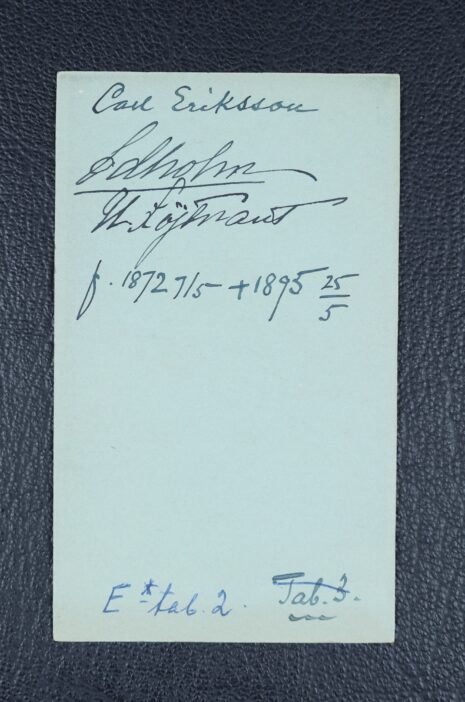 Carl Eriksson
Edholm
U. Löjtnant
f. 1872 7/5 + 1895 25/5
E * tab. 2. Tab. 3.